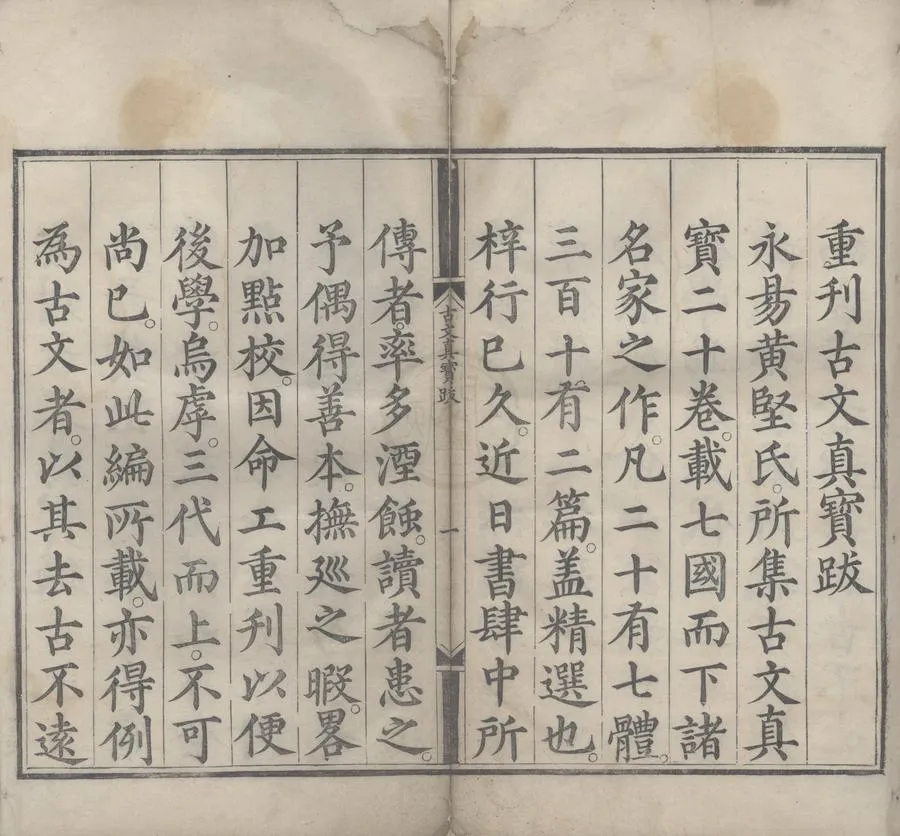 重刊古文真寶跋
永昜黄堅氏。所集古文真
寶二十卷。載七國而下諸
名家之作。凡二十有七體。
三百十有二篇。盖精選也。
梓行已久。近日書肆中所
古文真寶跋
一
傳者。率多湮蝕。讀者患之。
予偶得善本。撫廵之暇。畧
加點校。因命工重刊以便
後學。烏虖。三代而上。不可
尚已。如此編所載。亦得例
為古文者。以其去古不遠